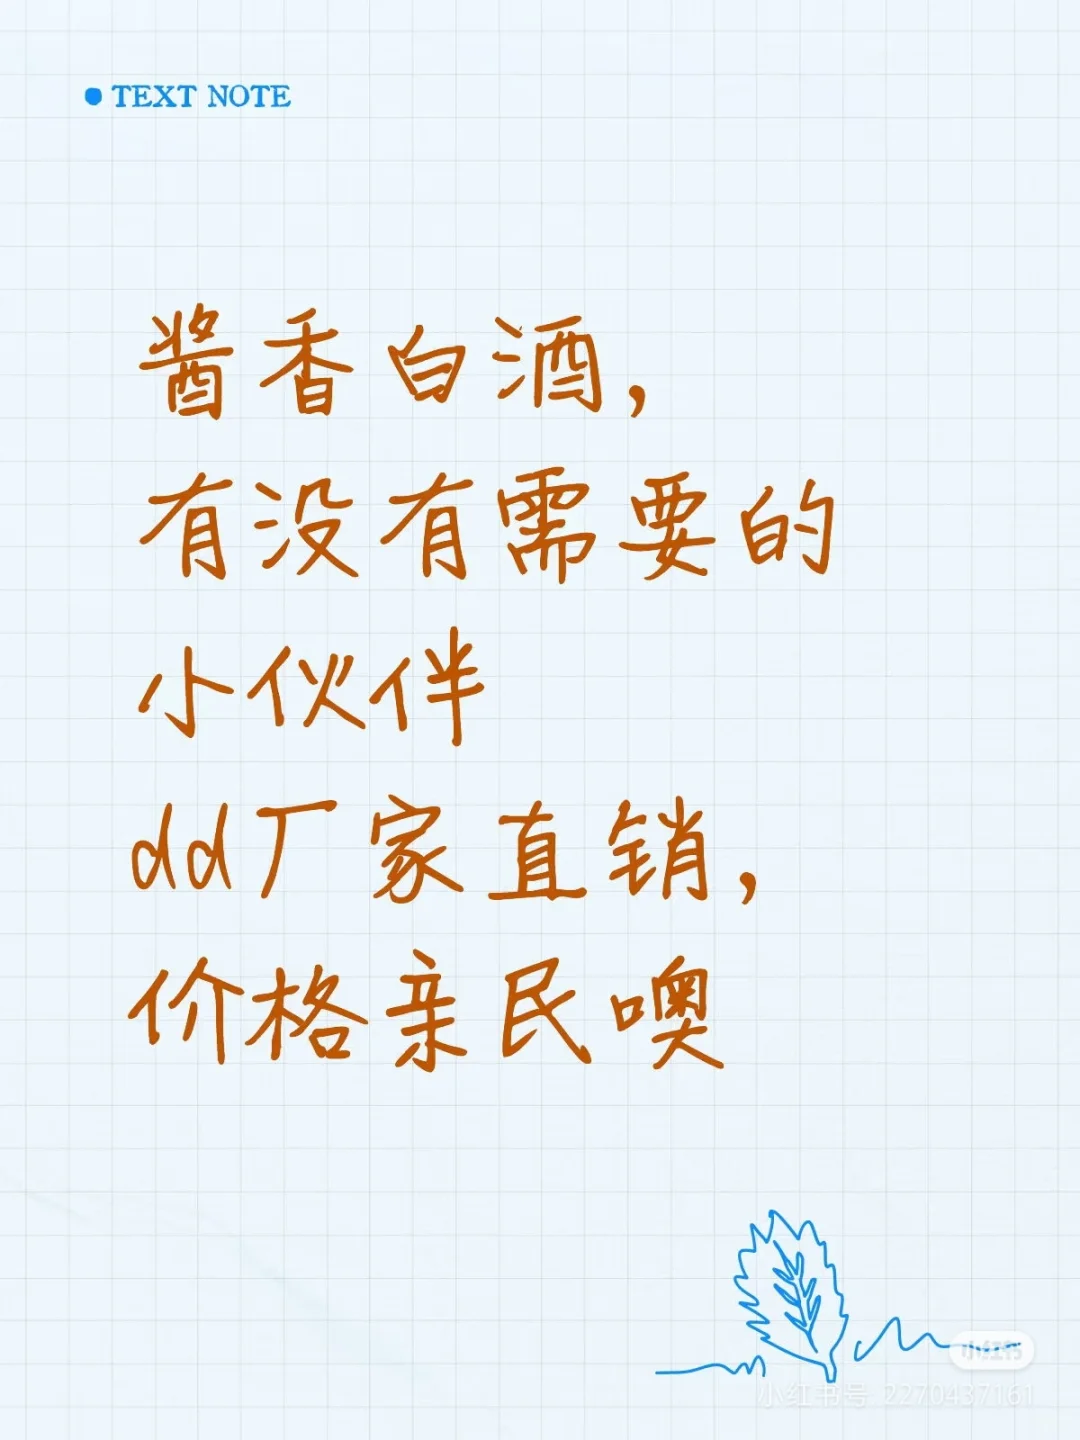 TEXT NOTE
酱香白酒，
有没有需要的
小伙伴
dd厂家直销，
价格亲民噢
小红书
小红书号 2270437161